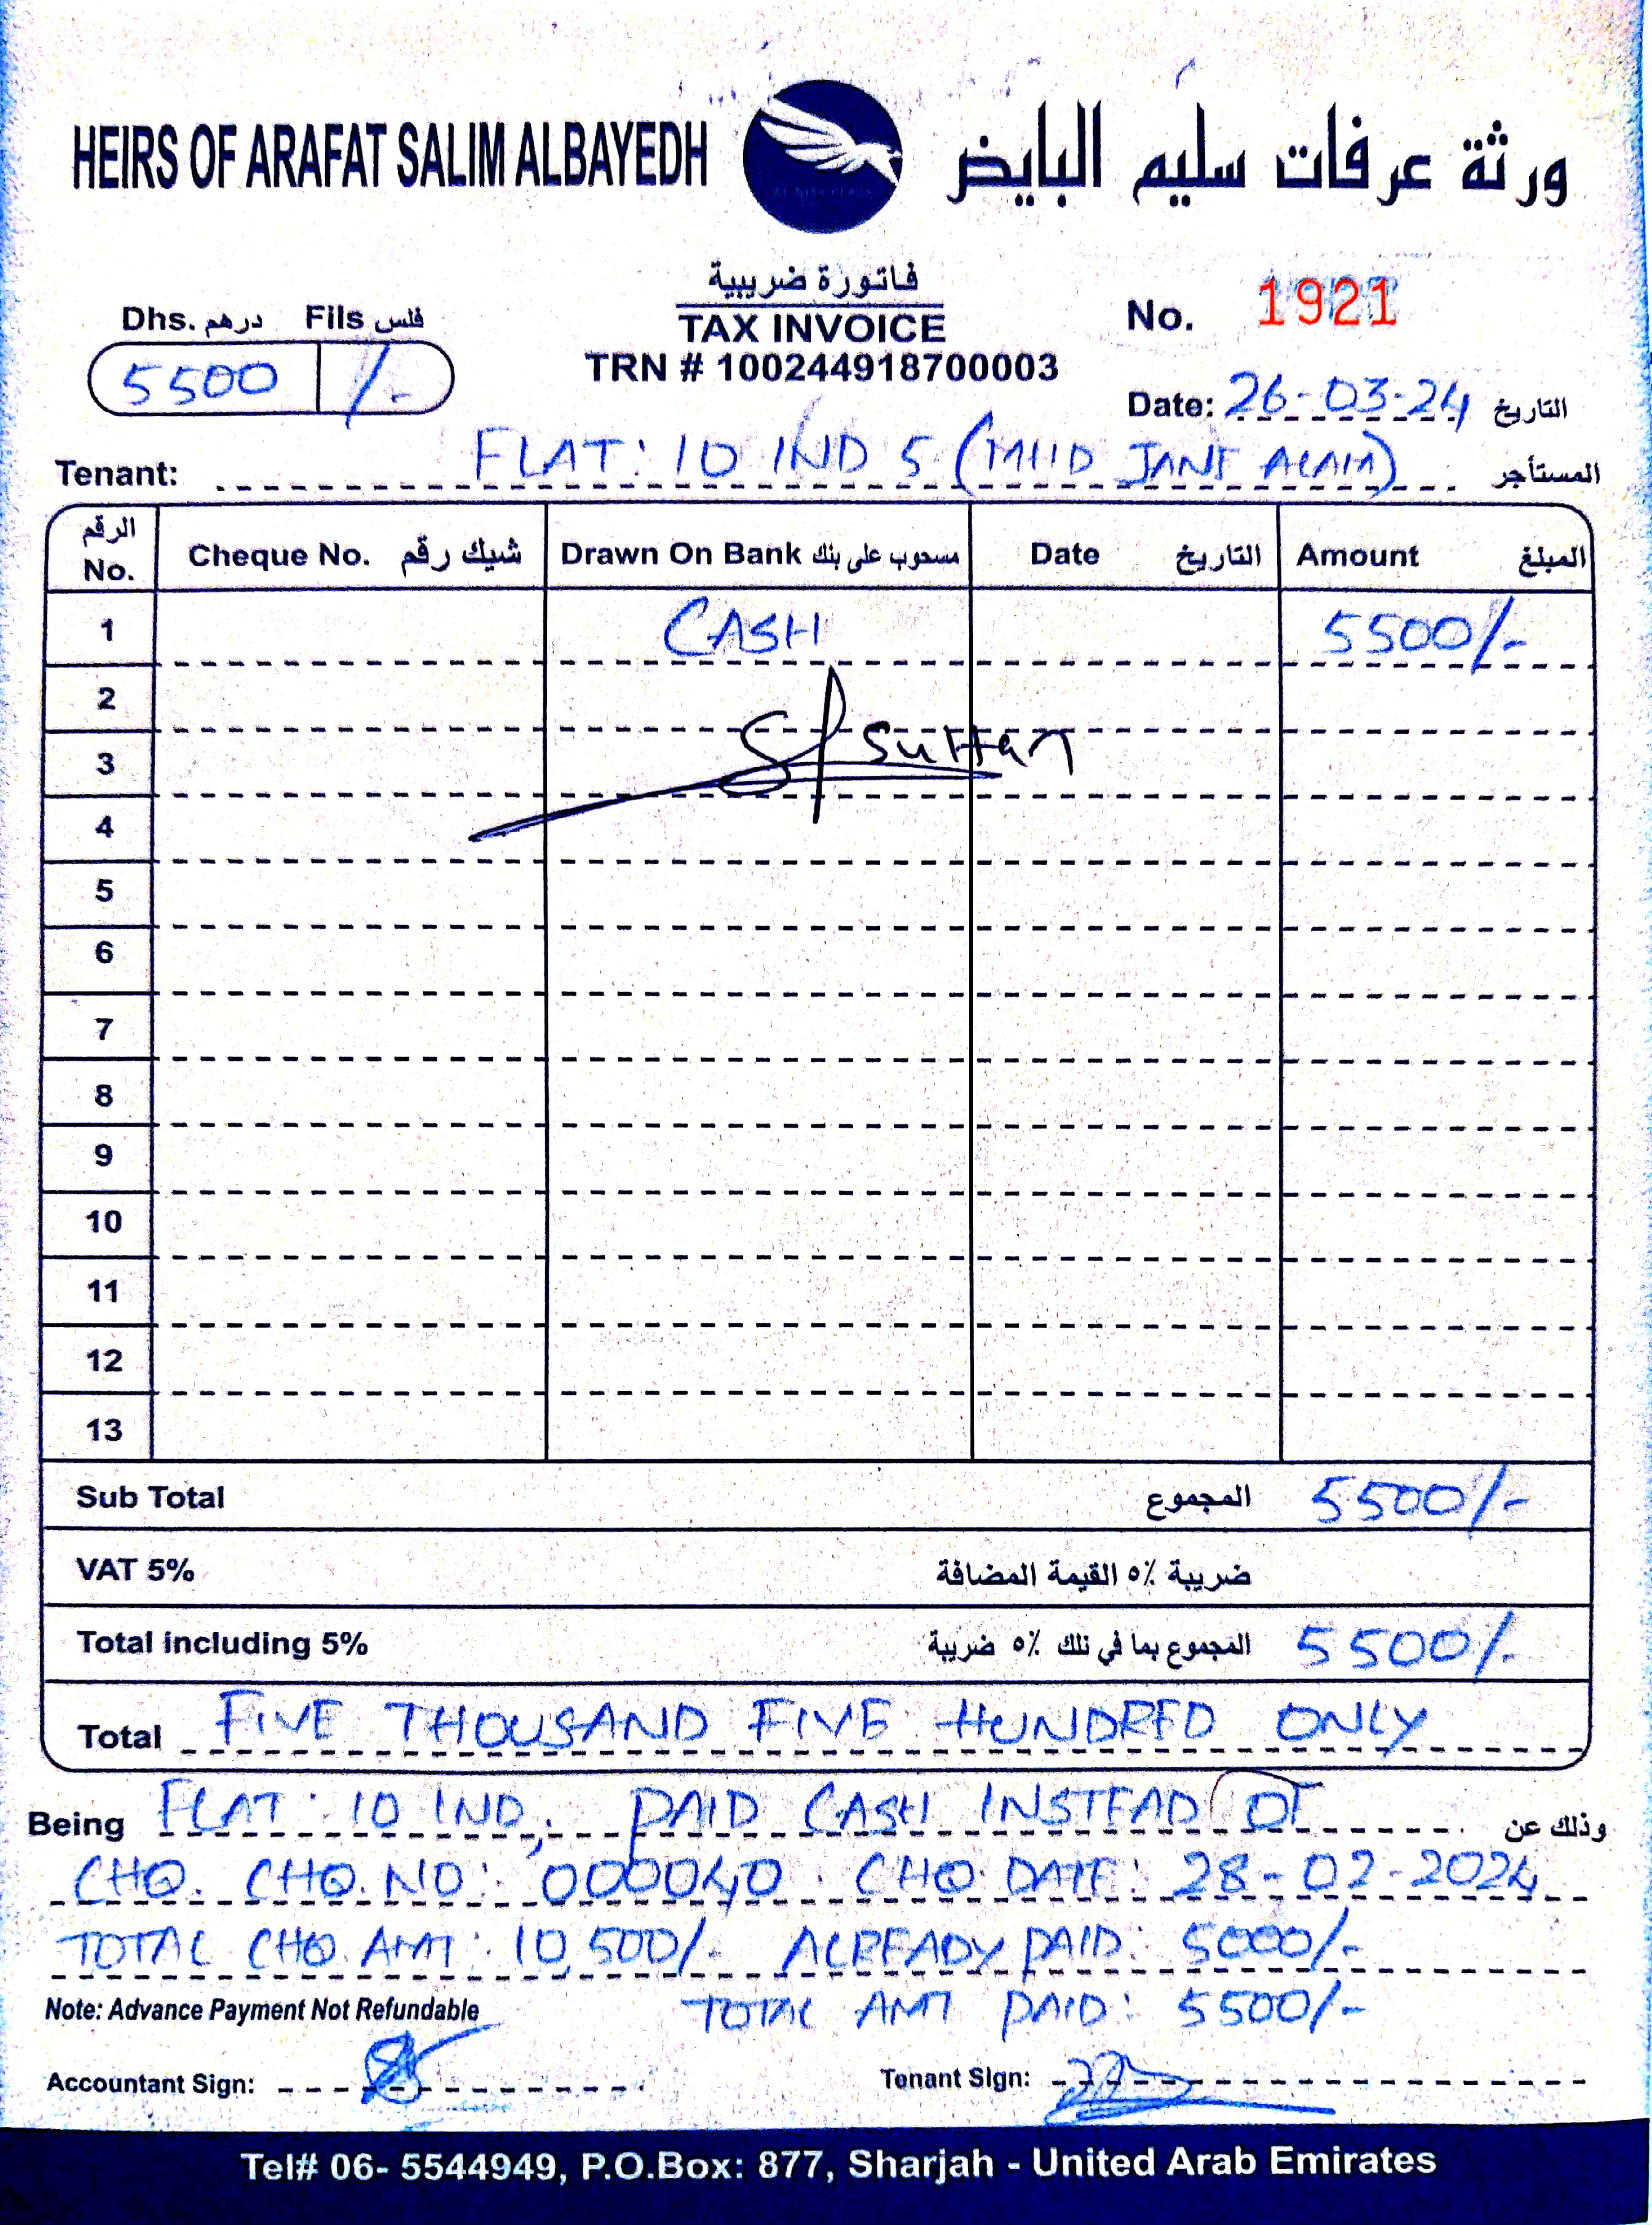 HEIRS OF ARAFAT SALIM ALBAYEDH ورثة عرفات سليم البايض
فاتورة ضريبية
TAX INVOICE
TRN # 100244918700003
Dhs. درهم Fils فلس
5500 /-
No. 1921
Date: 26-03-24 التاريخ
Tenant: FLAT: 10 IND 5 (MHD JANE ALAM) المستأجر
الرقم No. Cheque No. شيك رقم Drawn On Bank مسحوب على بنك Date التاريخ Amount المبلغ
1 CASH 5500/-
2
3 S/ Sultan
4
5
6
7
8
9
10
11
12
13
Sub Total المجموع 5500/-
VAT 5% ضريبة ٥٪ القيمة المضافة
Total including 5% المجموع بما في ذلك ٥٪ ضريبة 5500/-
Total FIVE THOUSAND FIVE HUNDRED ONLY
Being FLAT: 10 IND, PAID CASH INSTEAD OF وذلك عن
CHQ. CHQ. NO: 000040. CHQ. DATE: 28-02-2024
TOTAL CHQ AMT: 10,500/- ALREADY PAID: 5000/-
Note: Advance Payment Not Refundable TOTAL AMT PAID: 5500/-
Accountant Sign: Tenant Sign:
Tel# 06- 5544949, P.O.Box: 877, Sharjah - United Arab Emirates